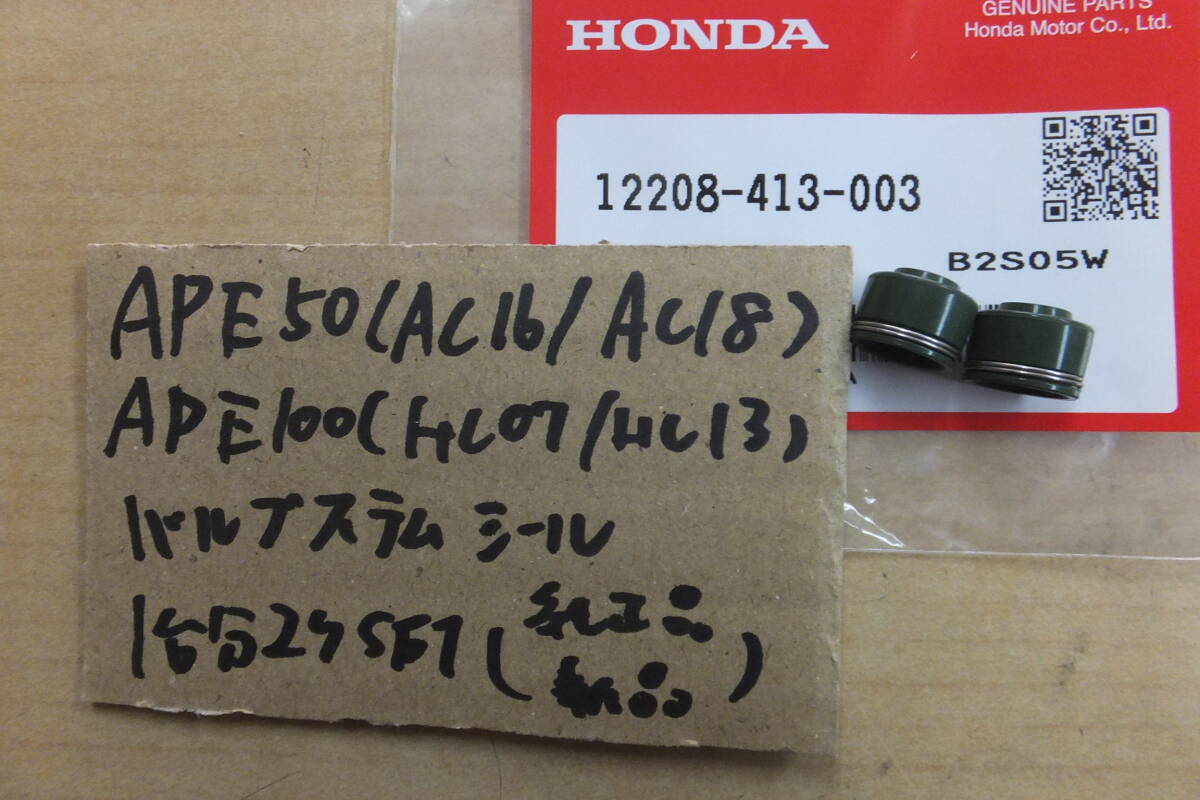 GENUINE PARTS
HONDA
Honda Motor Co., Ltd.
12208-413-003
B2S05W
APE50(AC16/AC18)
APE100(HC07/HC13)
バルブステムシール
1台分2ケSET(純正品
新品)